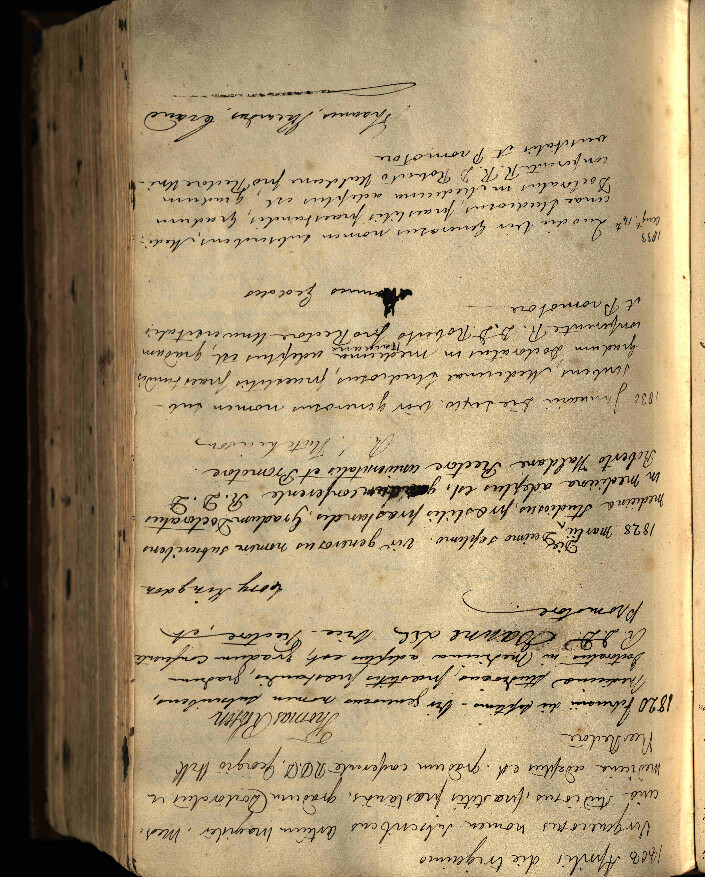 1808 Aprilis die trigesimo
Vir generosus nomen subscribens Artium Magister, Medi-
cinæ studiosus, præstitis præstandis, gradum Doctoratus in
medicina adeptus est, gradum conferente R.D.D. Georgio Hill
Vice Rectore
Thomas
1820 Februarii die septimo. Vir generosus nomen subscribens,
Medicinæ studiosus, præstitis præstandis, gradum
Doctoratus in Medicina adeptus est, gradum conferente
R. D.D. Vice-Rectore, et
Promotore
Cory Kingdon
1828 Martii Die Decimo septimo. Vir generosus nomen subscribens
medicina studiosus, præstitis præstandis, Gradum Doctoratus
in medicina adeptus est, gradum conferente R. D. D.
Roberto Haldane Rectore universitatis et Promotore.
R. Hutchinson
Januarii Die sexto Vir generosus nomen sub-
scribens, Medicinae studiosus, praestitis praestandis
gradum Doctoratus in medicina adeptus est, gradum
conferente R. D. D Roberto Haldane pro Rectore Universitatis
et Promotore
Geddes
1833 Augt. 14th Quo die Vir Generosus nomen subscribens, Medi-
cinae studiosus, praestitis praestandis, gradum
Doctoratus in Medicina adeptus est, gradum
conferente R. R. D Roberto Haldane pro Rectore Uni-
versitatis et Promotore